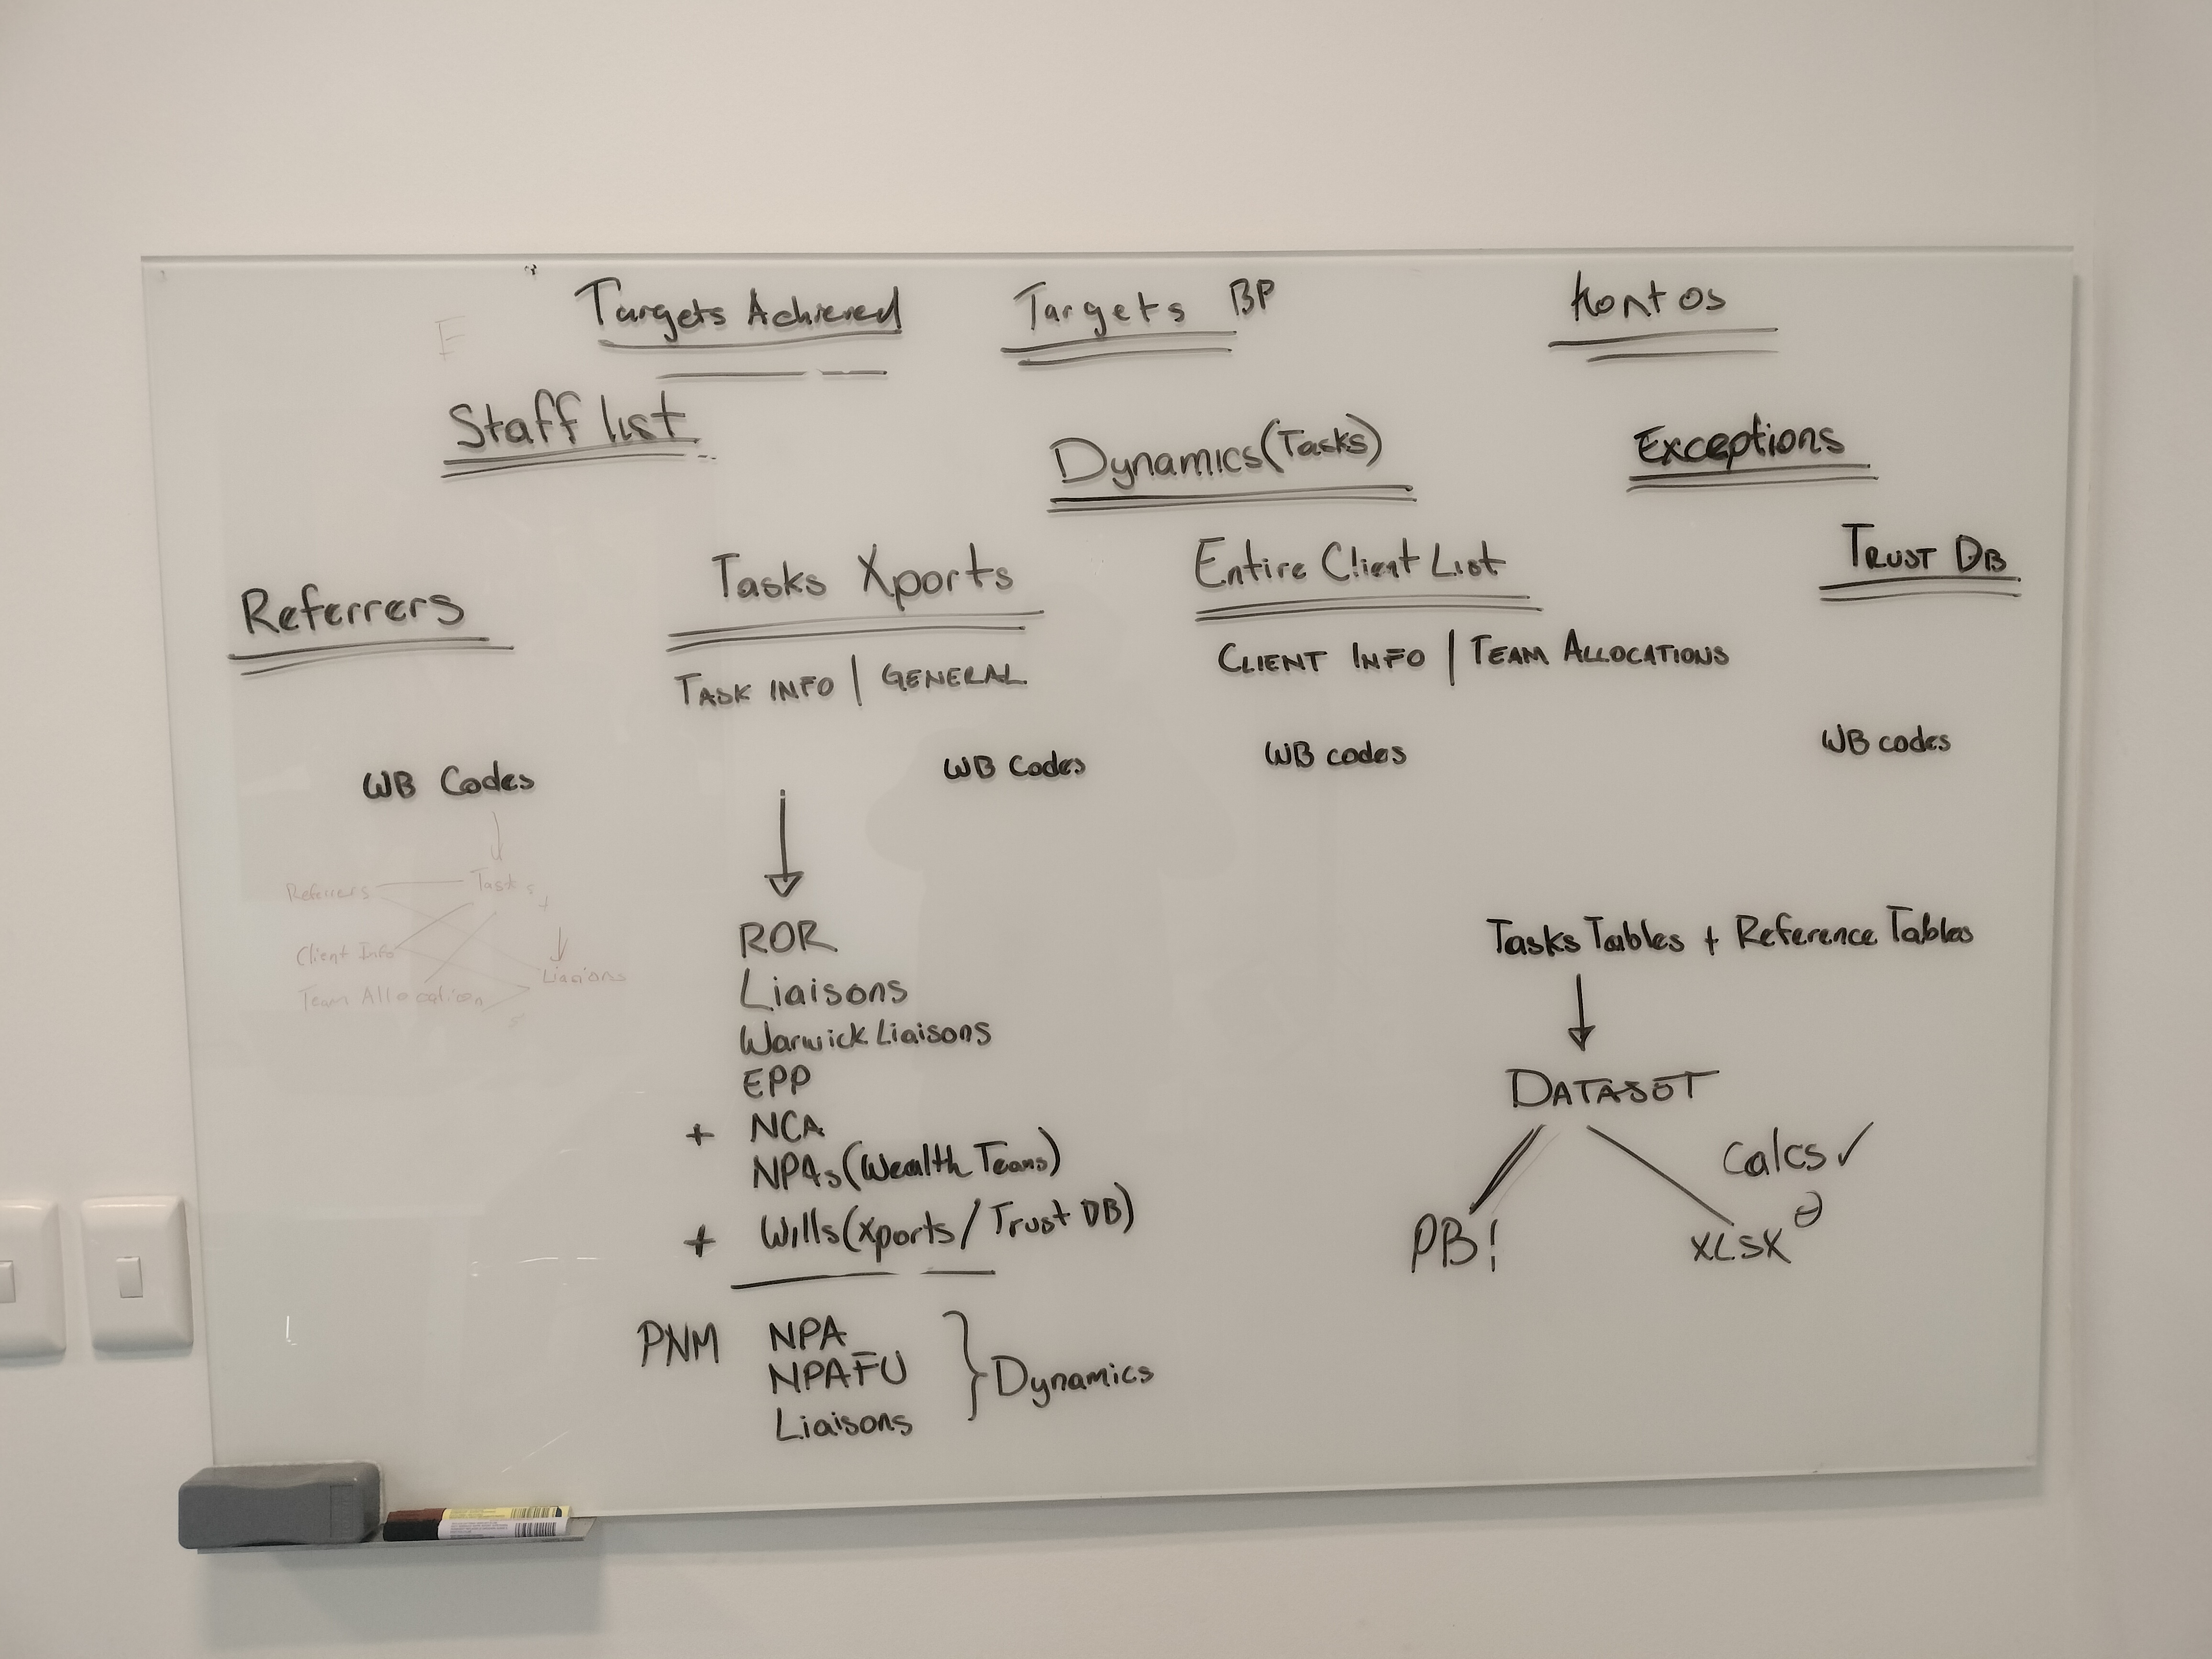 Targets Achieved
Targets BP
Kontos
F
Staff list
Dynamics (Tasks)
Exceptions
Referrers
Tasks Xports
Entire Client List
TRUST DB
TASK INFO | GENERAL
CLIENT INFO | TEAM ALLOCATIONS
WB Codes
WB Codes
WB codes
WB codes
Referrers
Tasks
+
Client Info
Team Allocation
Liasions
ROR
Liaisons
Warwick Liaisons
EPP
+ NCA
NPAs (Wealth Teams)
+ Wills (Xports / Trust DB)
PNM
NPA
NPAFU
Liaisons
} Dynamics
Tasks Tables + Reference Tables
DATASET
Calcs ✓
PB!
XLSX